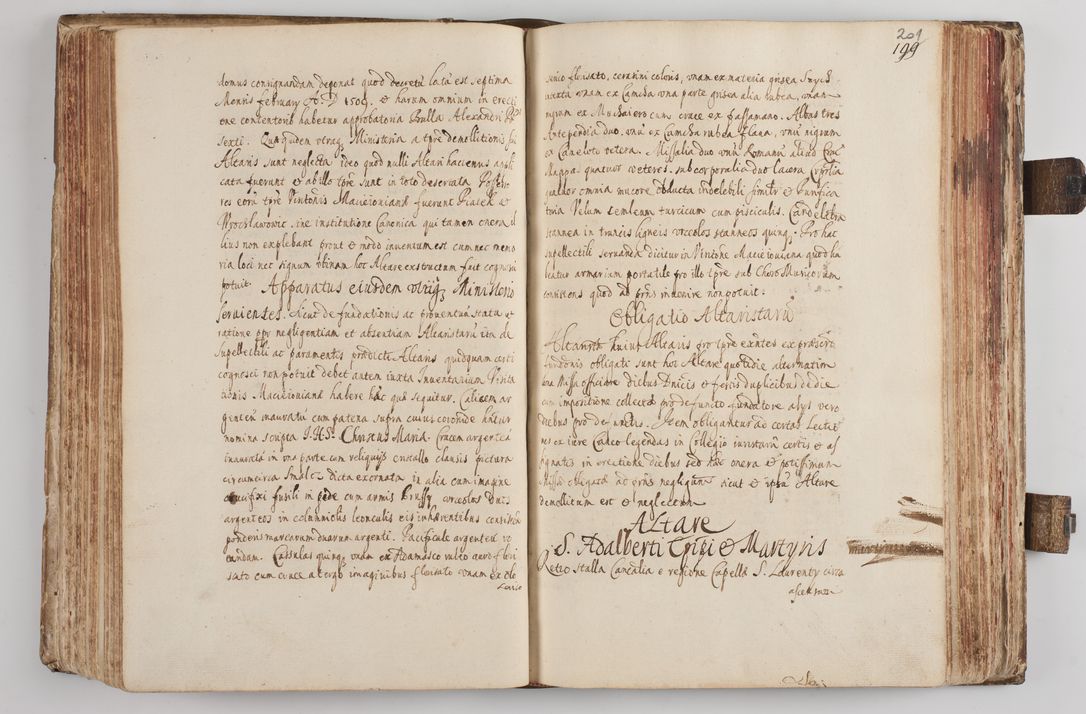 domus consignandam degenat quod decretũ latũ est septima
Mensis february A. D 1509. & harum omnium in erecti
one contentorũ habetur approbatoria Bulla Alexandri
Sexti. Quaquidem utraq; Ministeria a tpre demollitionis
Altaris sunt neglecta ideo quod nulli Altari hactenus appli
cata fuerunt & ab illo tpre sunt in toto deserta Possesso
res eorũ tpre Visitonis Macieioniana fuerunt Piasek &
Wrocslawowic sine institutione Canonica qui tamen onera il
lius non explebant prout & modo inuentum est cum nec memo
ria loci nec signum ubinam hoc Altare exstructum fuit cognosci
potuit. Apparatus eiusdem utriq; Ministerio
seruientes. Sicut de fundationis ac prouentũ statu &
ratione ppr negligentiam et absentiam Altaristarũ ita de
Supellectili ac paramentis prædicti Altaris quidquam certi
cognosci non potuit debet autem iuxta Inuentarium Visita
tionis Macieioniana habere hæc quæ sequitur. Calicem ar
genteũ inauratũ cum patena supra cuius coronide
nomina scripta I. H. S. Christus Maria. Crucem argenteã
inauratã in una parte cum reliquijs cristallo clausis pictura
circumcirca Smalcz dicta exornata in alia cum imagine
crucifixi fusili in pede cum armis Prussy urceolos duos
argenteos in columnolis leonculis eis inhærentibus consisten
ponderis marcarum duarum argenti. Pacificale argenteũ ro
tundum. Casulas quinq; unam ex Adamasco rubro auro flori
sato cum cruce a tergo imaginibus florisato unam ex
201
199
serico florisato, cerasini coloris, unam ex materia grisea
unam ex Camcha una parte grisea alia rubea, unam
nigram ex Muchaiero cum cruce ex passamano. Albas tres
Antependia duo, unũ ex Camcha rubea & flaua, unũ nigrum
ex Caneloto vetera. Missalia duo unũ Romanũ aliud
Mappas quatuor veteres. sub corporalia duo lacera
omnia mucore obducta indelebili & Purifica
toria Velum turcicum cum pisciculis. Candelabra
stannea in truncis ligneis urceolos stanneos quinq;. Pro hac
supellectili seruanda dicitur in Visitone Macieiouiana quod ha
beatur armarium portatile pro illo tpre sub Choro Musicorum
consistens quod ad præns inuenire non potuit.
Obligatio Altaristarũ
Altaristæ huius Altaris pro tpre exntes ex præscripto
fundonis obligati sunt hoc Altare quotidie alternatim
una Missa officiare diebus Dnicis & festis duplicibus de die
cum impositione collectæ pro defuncto fundatore alys vero
diebus pro defunctis. Item obligantur ad certas Lectio
nes ex iure Canco legendas in Collegio iuristarũ certis & as
signatis in erectione diebus sed hæc onera & potissimum
Missæ obligatæ ad præns negliguntur sicut & ipsũ Altare
demollitum est & neglectum
Altare
S. Adalberti & Martyris
Retro stalla Cancalia e regione Capellæ S. Laurenty circa
ascensum